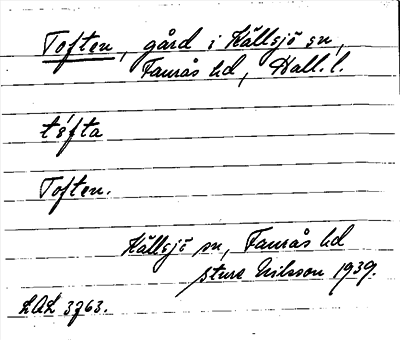 Toften, gård i Källsjö sn,
Faurås hd, Hall. l.
tófta
Toften.
Källsjö sn, Faurås hd
Sture Nilsson 1939.
LAL 3763.